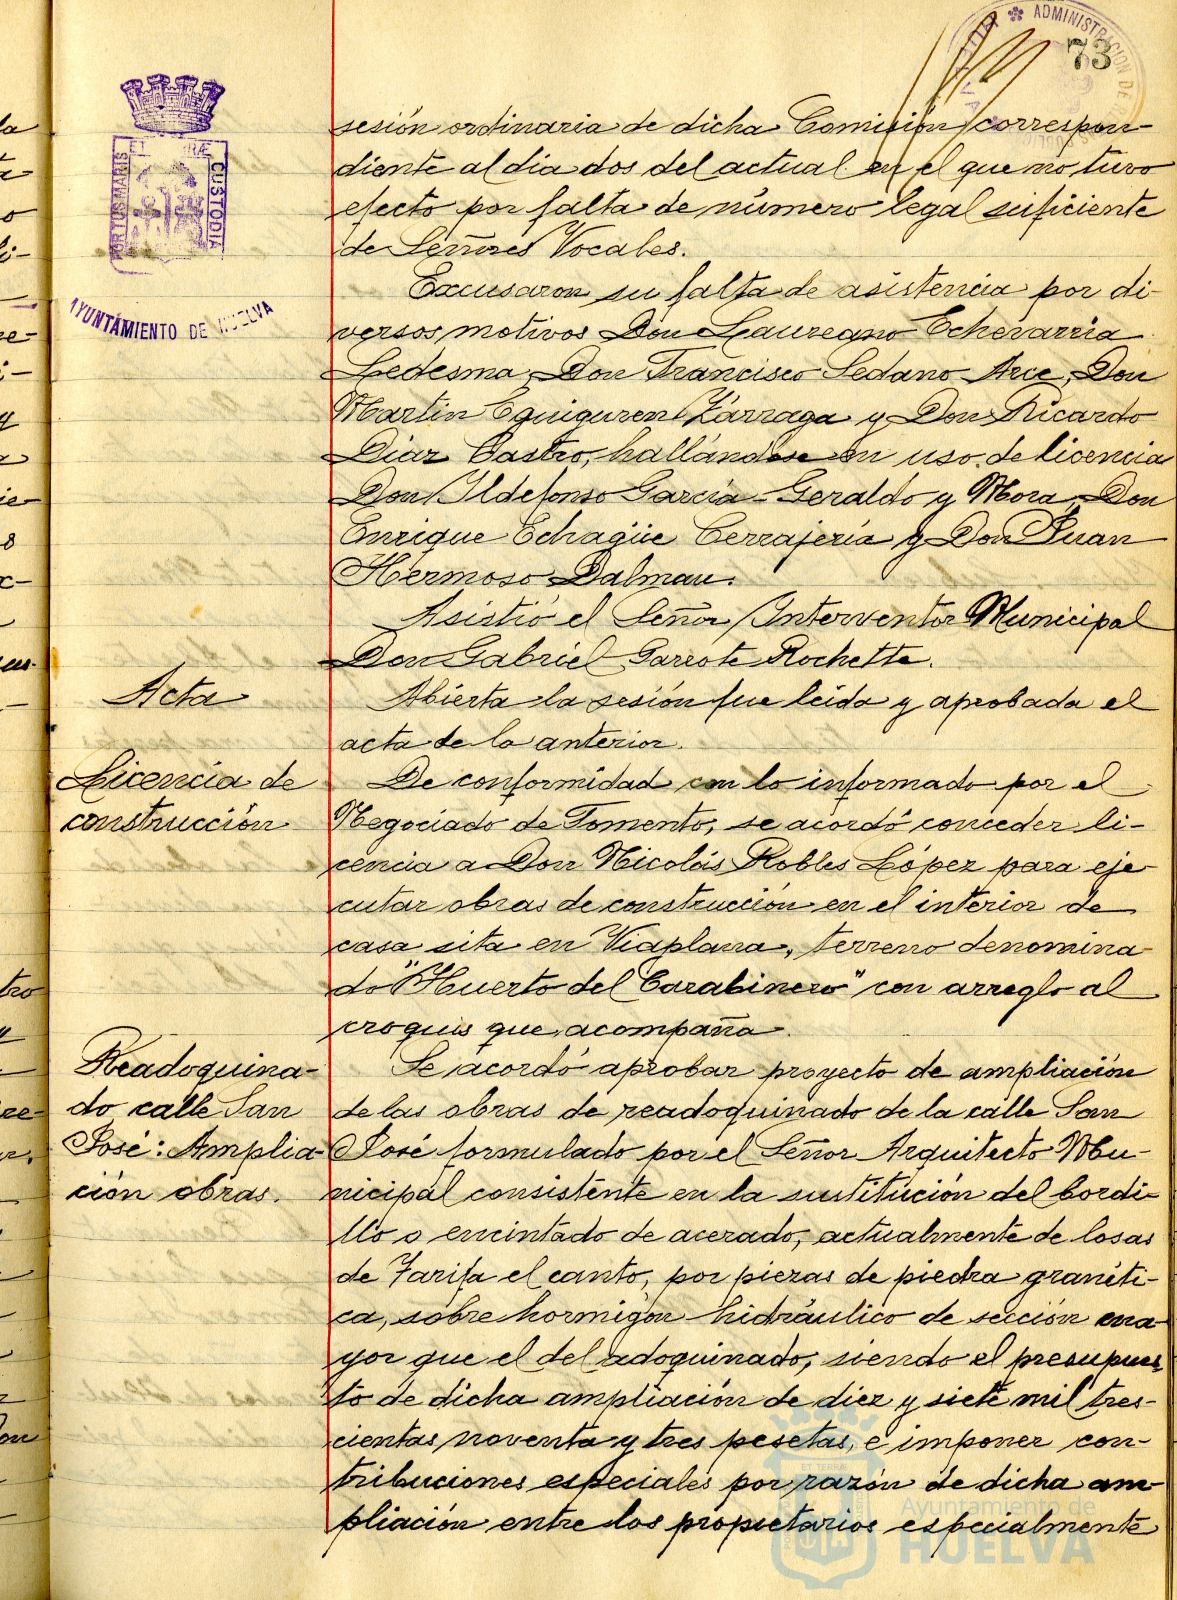 73
ADMINISTRACION DE
PORTUS MARIS
ET TERRÆ
CUSTODIA
AYUNTAMIENTO DE HUELVA
sesión ordinaria de dicha Comisión correspon-
diente al dia dos del actual en el que no tuvo
efecto por falta de número legal suficiente
de Señores Vocales.
Excusaron su falta de asistencia por di-
versos motivos Don Laureano Echevarria
Ledesma, Don Francisco Sedano Arce, Don
Martin Eguiguren Zárraga y Don Ricardo
Diaz Castro, hallándose en uso de licencia
Don Ildefonso Garcia-Geraldo y Mora, Don
Enrique Echagüe Cerrajeria y Don Juan
Hermoso Dalmau.
Asistió el Señor Interventor Municipal
Don Gabriel Garrote Rochette.
Acta
Abierta la sesión fue leida y aprobada el
acta de la anterior.
Licencia de
construcción
De conformidad con lo informado por el
Negociado de Fomento, se acordó conceder li-
cencia a Don Nicolás Robles López para eje
cutar obras de construcción en el interior de
casa sita en Viaplana, terreno denomina-
do "Huerto del Carabinero" con arreglo al
croquis que acompaña.
Readoquina-
do calle San
José: Amplia-
ción obras.
Se acordó aprobar proyecto de ampliación
de las obras de readoquinado de la calle San
José formulado por el Señor Arquitecto Mu-
nicipal consistente en la sustitución del bordi-
llo o encintado de acerado, actualmente de losas
de Tarifa el canto, por piezas de piedra graníti-
ca, sobre hormigón hidráulico de sección ma
yor que el del adoquinado, siendo el presupues
to de dicha ampliación de diez y siete mil tres-
cientas noventa y tres pesetas, e imponer con-
tribuciones especiales por razón de dicha am-
pliación entre los propietarios especialmente
Ayuntamiento de
HUELVA